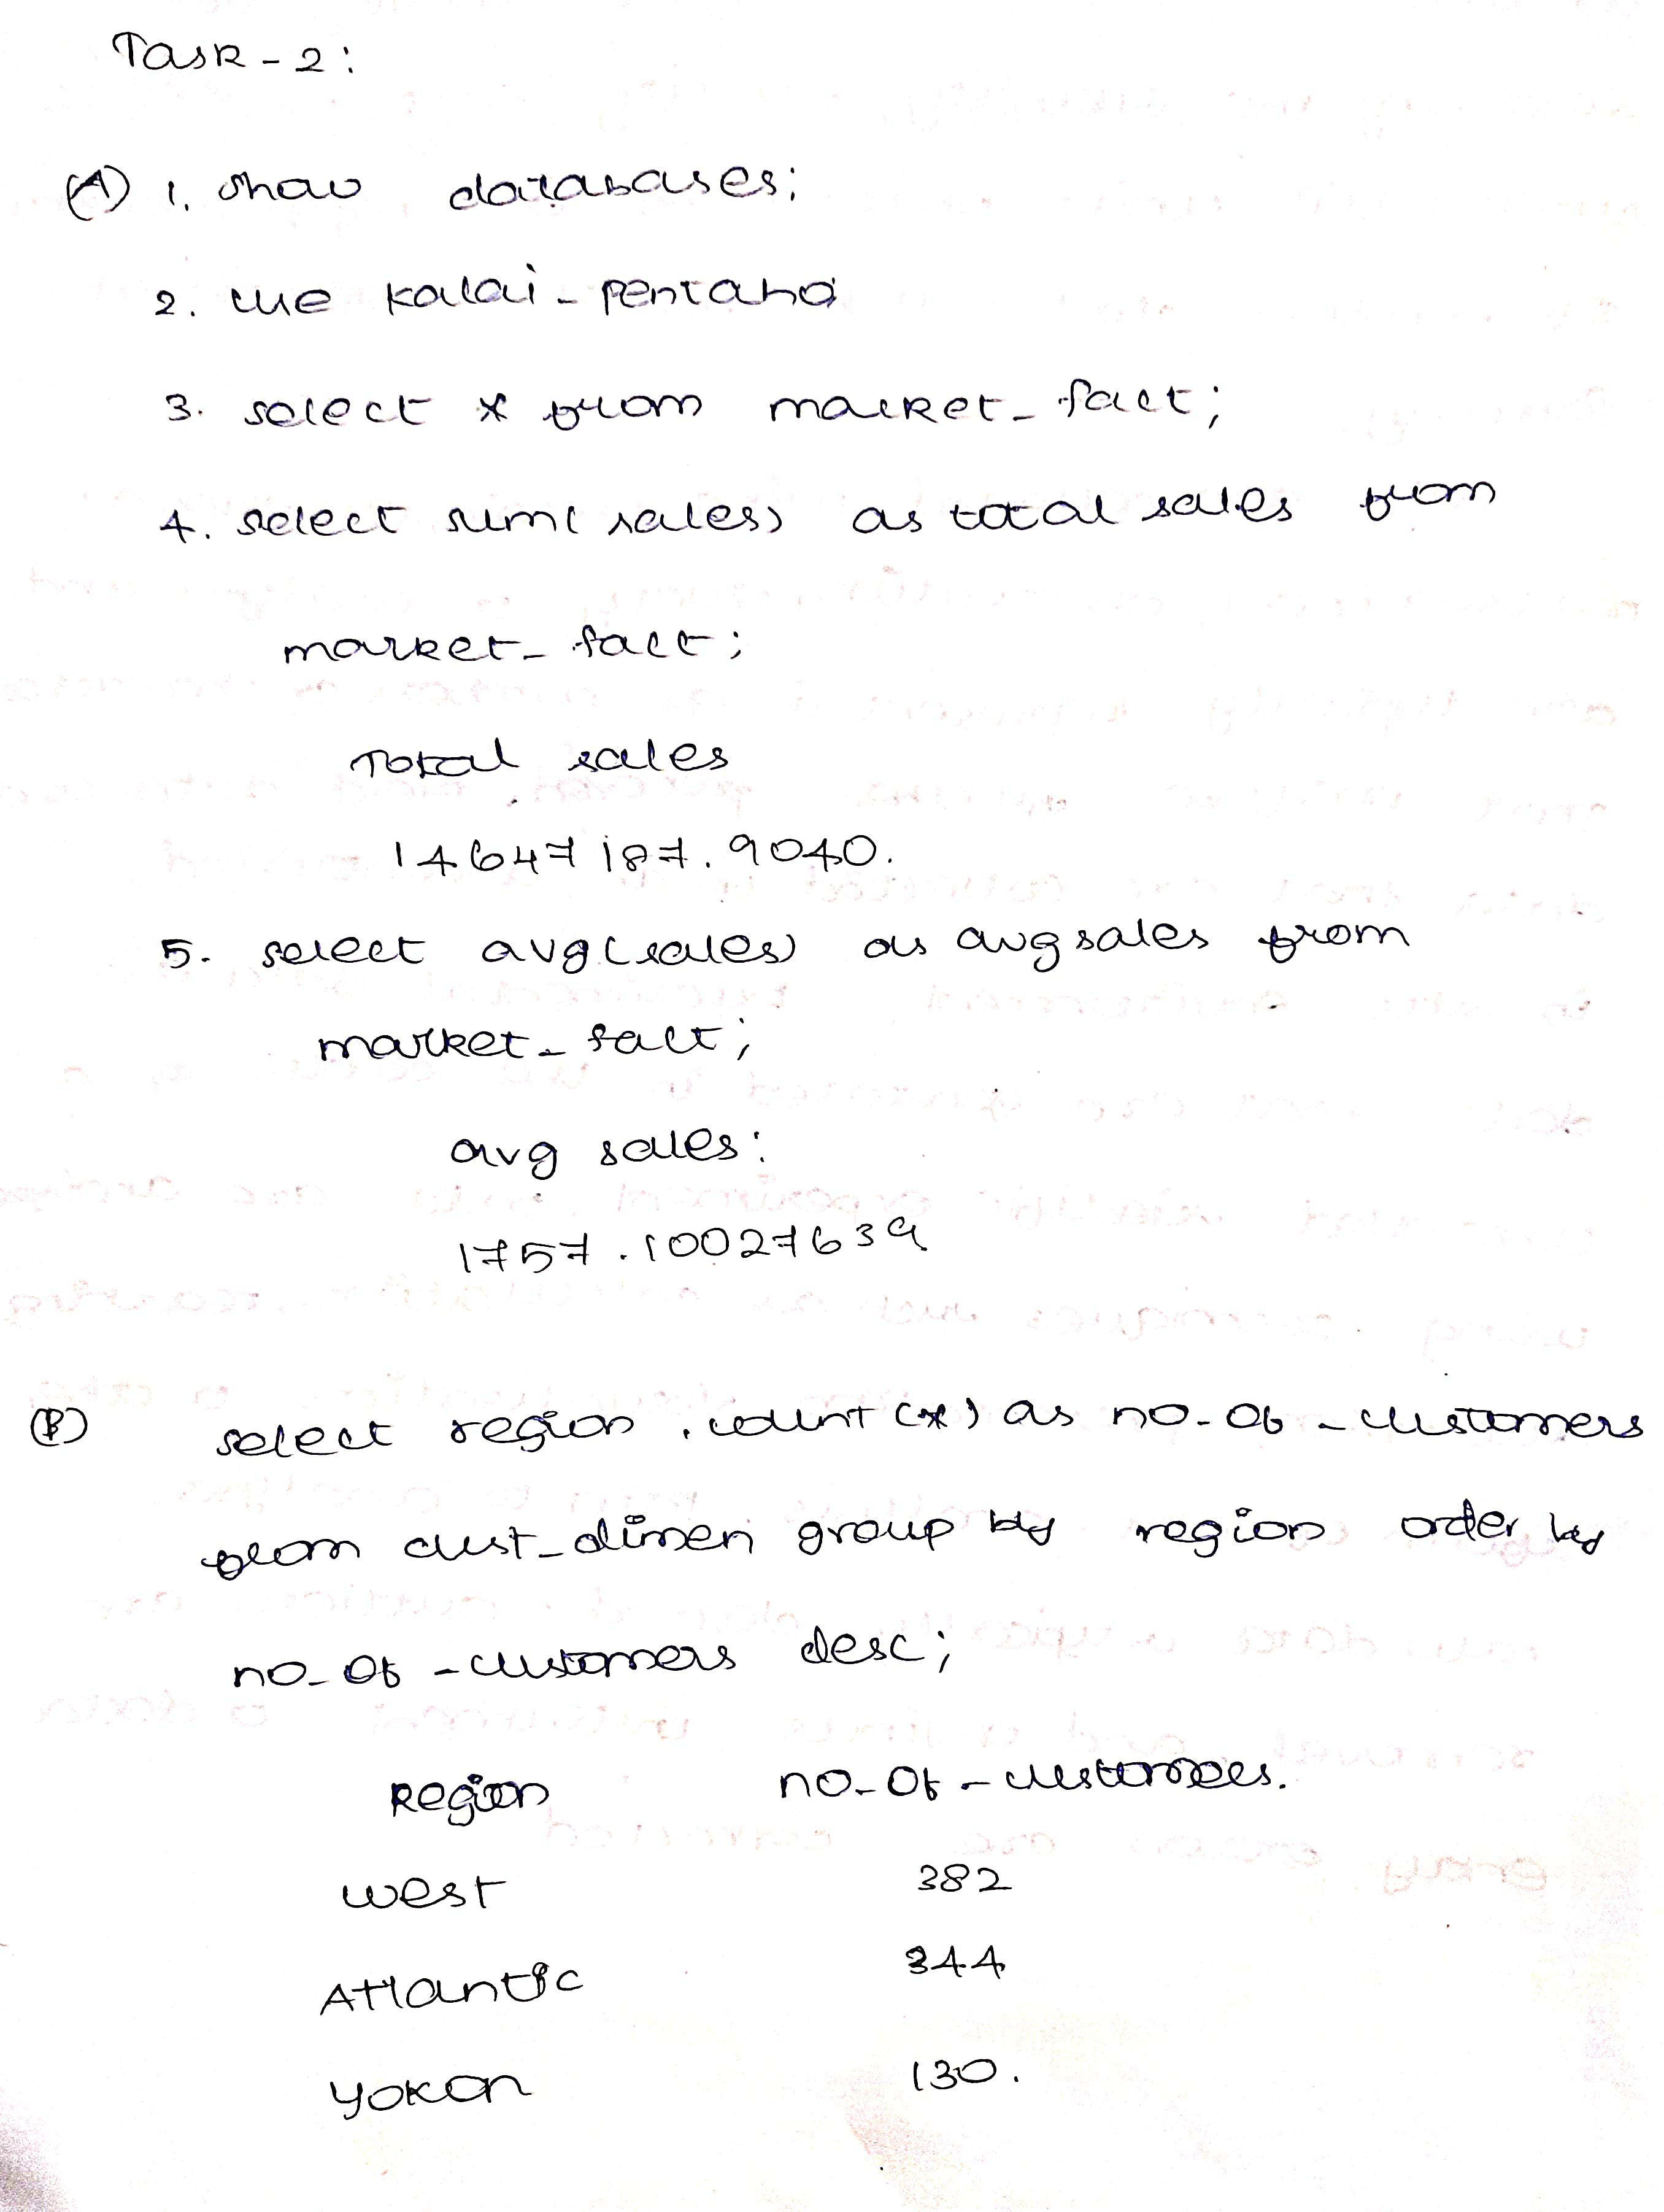 Task - 2:
(A) 1. show databases;
2. use kalai - pentaho
3. select * from market - fact;
4. select sum( sales) as total sales from
market - fact;
Total sales
14647187.9040.
5. select avg(sales) as avg sales from
market - fact;
avg sales:
1757.10027639
(B) select region , count (*) as no - of - customers
from cust - dimen group by region order by
no - of - customers desc;
Region no - of - customers.
west 382
Atlantic 344
Yokon 130.